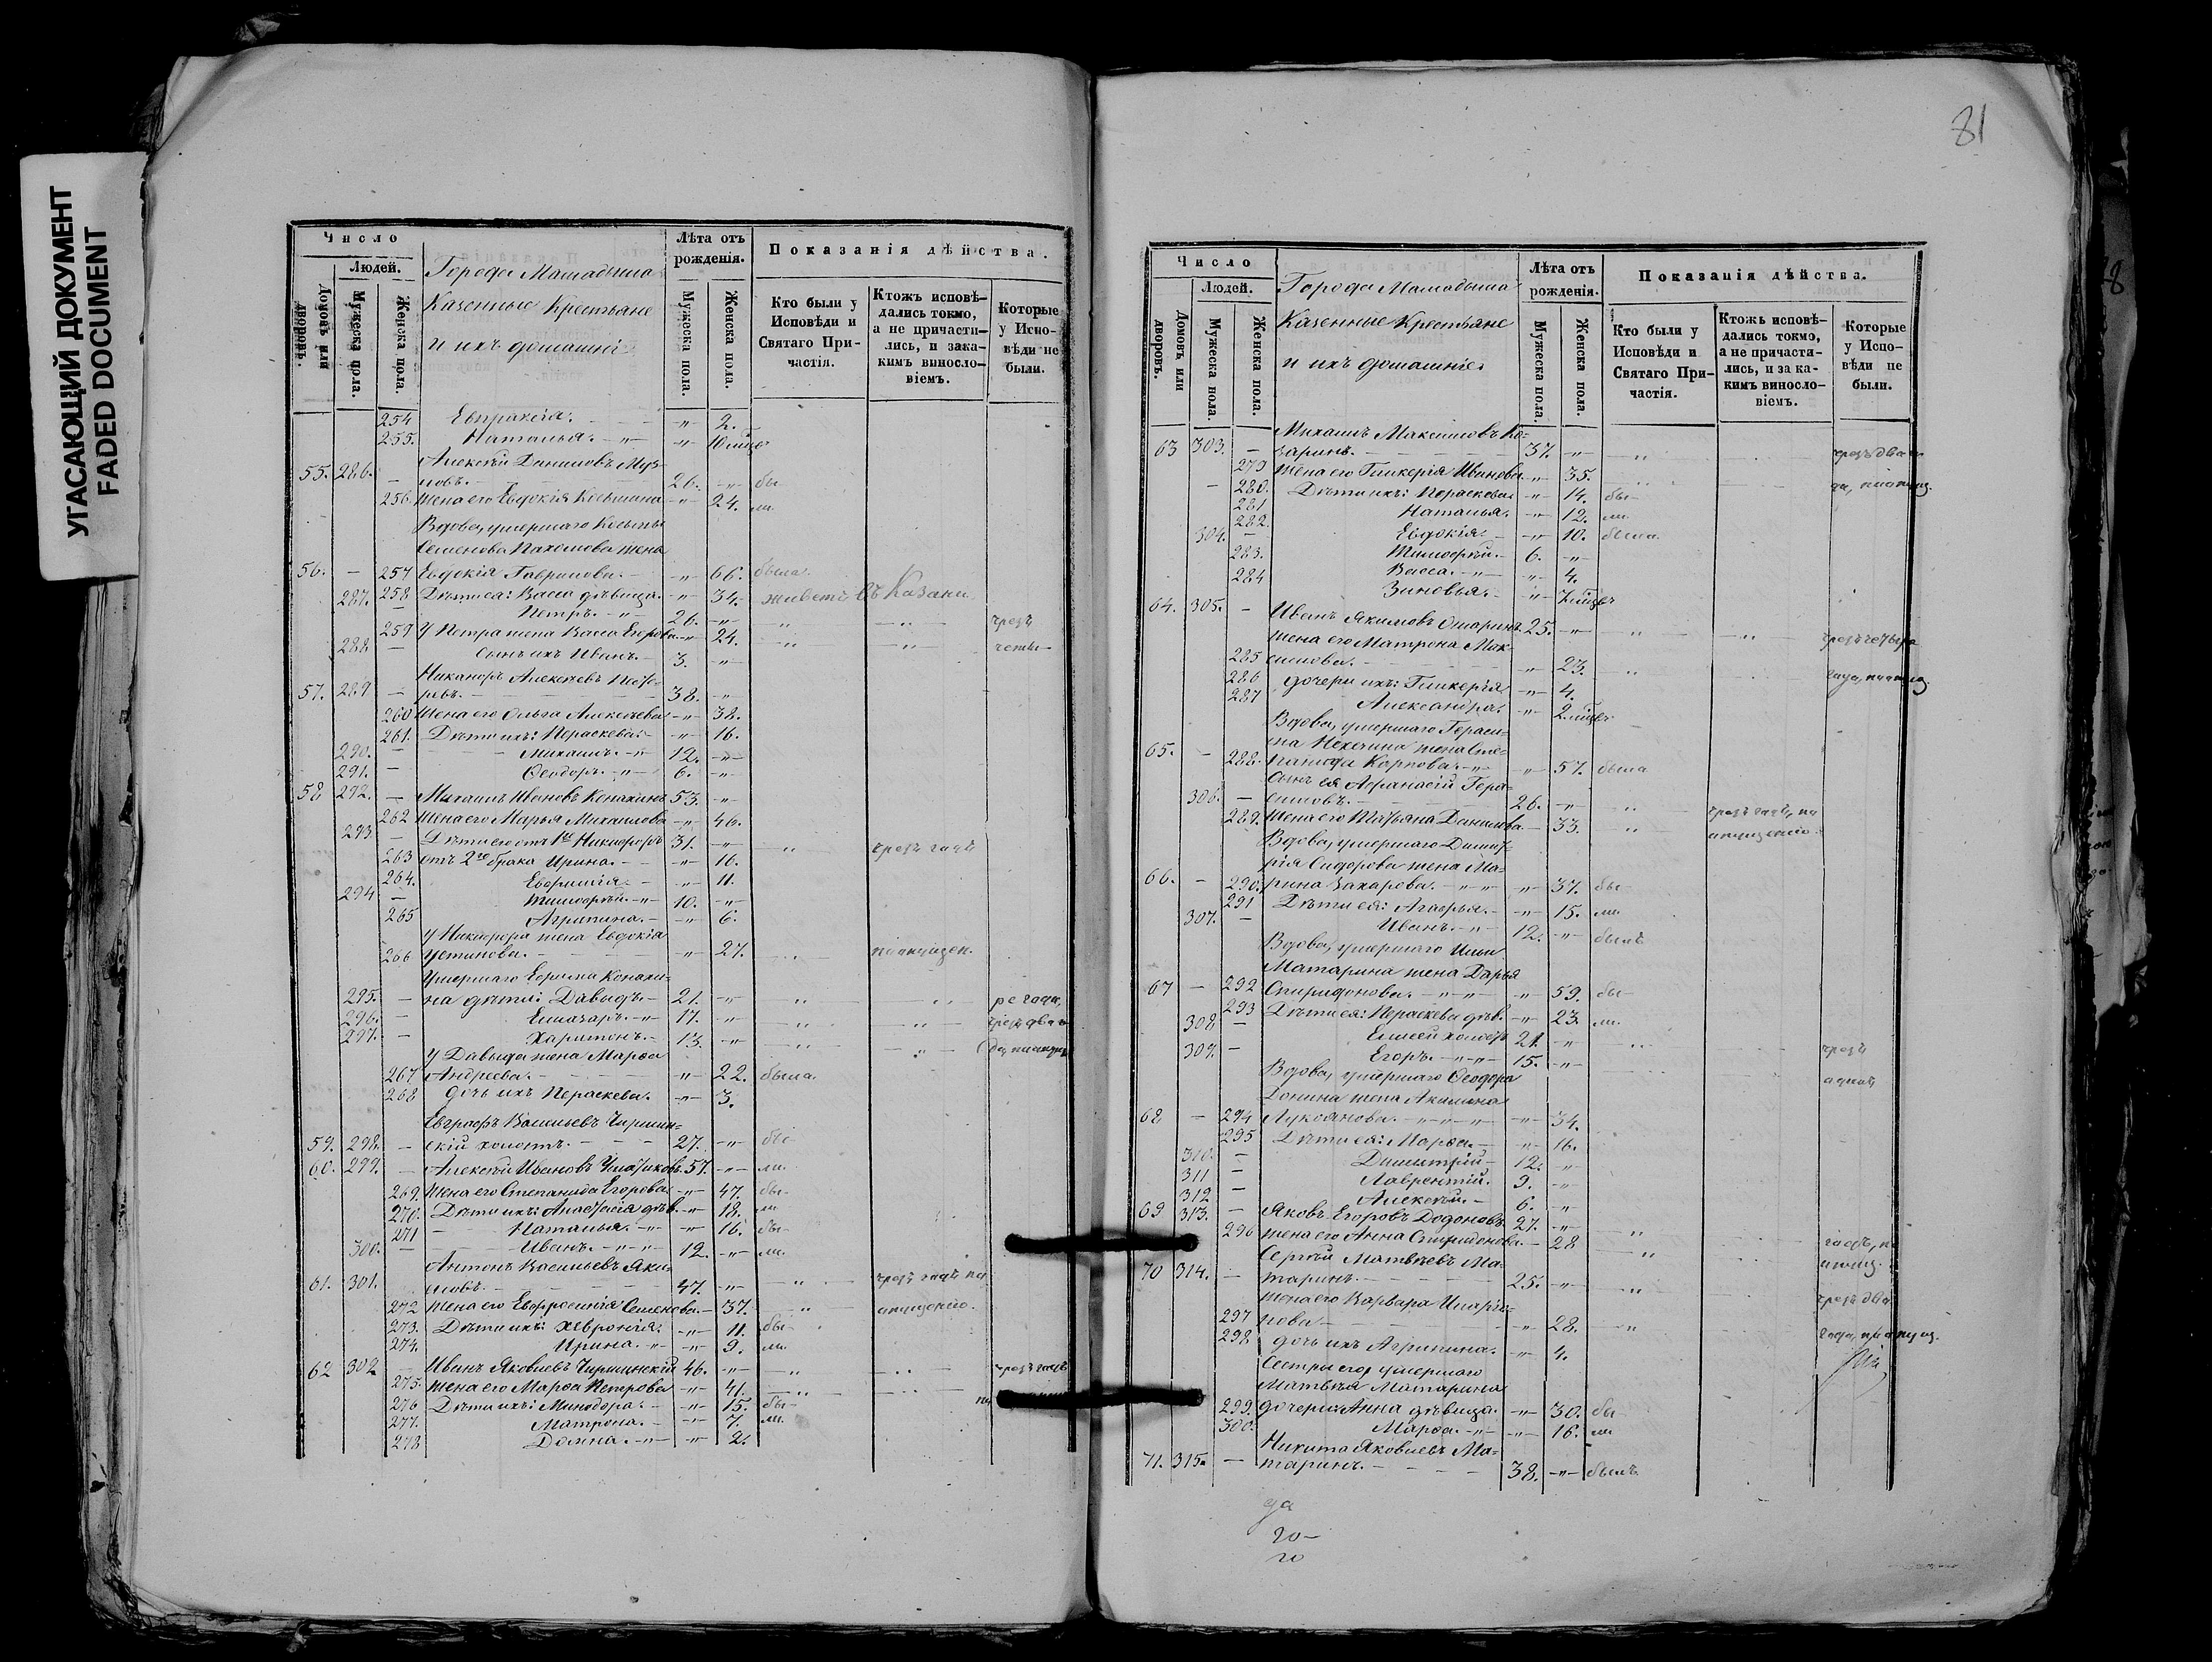 УГАСАЮЩИЙ ДОКУМЕНТ
FADED DOCUMENT
Число
Людей.
Домовъ или дворовъ.
Мужеска пола.
Женска пола.
Города Мамадыша
Казенные Крестьяне
и ихъ домашніе
Лѣта отъ рожденія.
Мужеска пола.
Женска пола.
Показанія дѣйства.
Кто были у Исповѣди и Святаго Причастія.
Ктожъ исповѣдались токмо, а не причастились, и за какимъ винословіемъ.
Которые у Исповѣди не были.
254 Евпраксія. - " - 2.
255. Наталья. - " - 10 мѣцъ
Алексѣй Даниловъ
55. 286. - 26. - " - бы
256 Жена его Евдокія Козьмина - " - 24. ли
Вдова, умершаго Козьмы
Семенова Пахомова жена
56. - 257 Евдокія Гаврилова. - " - 66. была.
258 Дѣти ея: Васса дѣвица. - " - 34. живетъ въ Казани
287. - Петръ. - " - 26. - " -
259 У Петра жена Васса Егорова - " - 24.
288 - Сынъ ихъ Иванъ. - 3. - " -
Никаноръ Алексѣевъ
57. 289 - 38. - " -
260 Жена его Ольга Алексѣева - " - 38.
261. Дѣти ихъ: Пераскева. - " - 16.
290. - Михаилъ. - " - 12. - " -
291. - Ѳеодоръ. - " - 6. - " -
58 292. - Михаилъ Ивановъ Конахинъ 53. - " -
262 Жена его Марья Михайлова - " - 46.
293 - Дѣти его отъ 1го Никифоръ 31. - " - чрезъ годъ
263 отъ 2го брака Ирина. - " - 16.
264. Евфимія. - " - 11.
294 - Тимоѳей. - " - 10. - " -
265 Агрипина. - " - 6.
У Никифора жена Евдокія
266 Устинова. - " - 27. по опущен.
Умершаго Ефима Конахи-
295. - на дѣти: Давыдъ. - 21. - " - ре года,
296. - Елиазаръ. - " - 17. - " -
297. - Харитонъ. - 13. - " -
У Давыда жена Марѳа
267 Андреева. - " - 22. была.
268 дочь ихъ Пераскева. - " - 3.
Евграфъ Васильевъ Чиршин-
59. 298. - скій холостъ. - 27. - " - бы
60. 299. - Алексѣй Ивановъ 57. - " - ли.
269. Жена его Степанида Егорова - " - 47. бы-
270. Дѣти ихъ: Анастасія дѣв. - " - 18. ли
271 Наталья. - " - 16. бы-
300. - Иванъ. - " - 12. - " - ли.
Антонъ Васильевъ Яки-
61. 301. мовъ. - 47. - " - чрезъ годъ по
272 Жена его Евфросинія Семенова. - 37. опущенію.
273. Дѣти ихъ: Хевронія. - " - 11. бы-
274. Ирина. - " - 9. ли.
62 302 - Иванъ Яковлевъ Чиршинскій 46. - " - чрезъ годъ
275. Жена его Марѳа Петрова - " - 41.
276 Дѣти ихъ: Минодора. - " - 15. бы-
277. Матрона. - " - 7. ли.
278 Домна. - " - 2.
81
Число
Людей.
Домовъ или дворовъ.
Мужеска пола.
Женска пола.
Города Мамадыша
Казенные Крестьяне
и ихъ домашніе
Лѣта отъ рожденія.
Мужеска пола.
Женска пола.
Показанія дѣйства.
Кто были у Исповѣди и Святаго Причастія.
Ктожъ исповѣдались токмо, а не причастились, и за какимъ винословіемъ.
Которые у Исповѣди не были.
Михаилъ Максимовъ
63 303. - 37. - " - чрезъ два го
279 Жена его Гликерія Иванова - " - 35. да, по опущ.
280. Дѣти ихъ: Пераскева - " - 14. бы-
281 Наталья. - " - 12. ли.
282. Евдокія. - " - 10. была.
304. - Тимоѳей. - 6. - " -
283. Васса. - " - 4.
284 Зиновья. - " - 7 мѣцъ
64. 305. - Иванъ Якимовъ 25. - " - чрезъ четыре
Жена его Матрона Мак-
285 симова. - " - 23. года, по опущ
286 дочери ихъ: Гликерія - " - 4.
287 Александра. - " - 2 мѣцъ
Вдова, умершаго Гераси-
ма жена Сте-
65. - 288. панида Карпова. - " - 57. была
Сынъ ея Аѳанасій Гера-
306. - симовъ. - 26. - " - чрезъ годъ, по
289. Жена его Татьяна Данилова - 33. опущенію.
Вдова, умершаго Димит-
рія Сидорова жена Ма-
66. - 290. рина Захарова. - " - 37. бы-
291 Дѣти ея: Агафья. - " - 15. ли.
307. - Иванъ. - " - 12. - " - былъ
Вдова, умершаго Ильи
Матарина жена Дарья
67 - 292 Спиридонова. - " - 59. бы-
293 Дѣти ея: Пераскева дѣв. - " - 23. ли.
308 - Елисей холостъ 21. - " -
309. - Егоръ. - " - 15. - " - чрезъ
Вдова, умершаго Ѳеодора
Донина жена Акилина
68 - 294 Лукоянова. - " - 34.
295 Дѣти ея: Марѳа. - " - 16.
310. - Димитрій - 12. - " -
311 - Лаврентій. 9. - " -
312 - Алексѣй. - 6. - " -
69 313. - Яковъ Егоровъ Додоновъ 27. - " -
296 Жена его Анна Спиридонова. - 28 годъ, по
Сергѣй Матвѣевъ Ма- опущ.
70 314. - таринъ. - 25. - " -
Жена его Варвара Иларіо- чрезъ два
297 нова - " - 28.
298 дочь ихъ Агрипина. - " - 4. года, по опущ.
Сестры его умершаго
Матвѣя Матарина
299. дочери: Анна дѣвица. - " - 30. бы
300. Марѳа. - " - 16. ли
Никита Яковлевъ Ма-
71. 315. - таринъ. - 38. - " - былъ